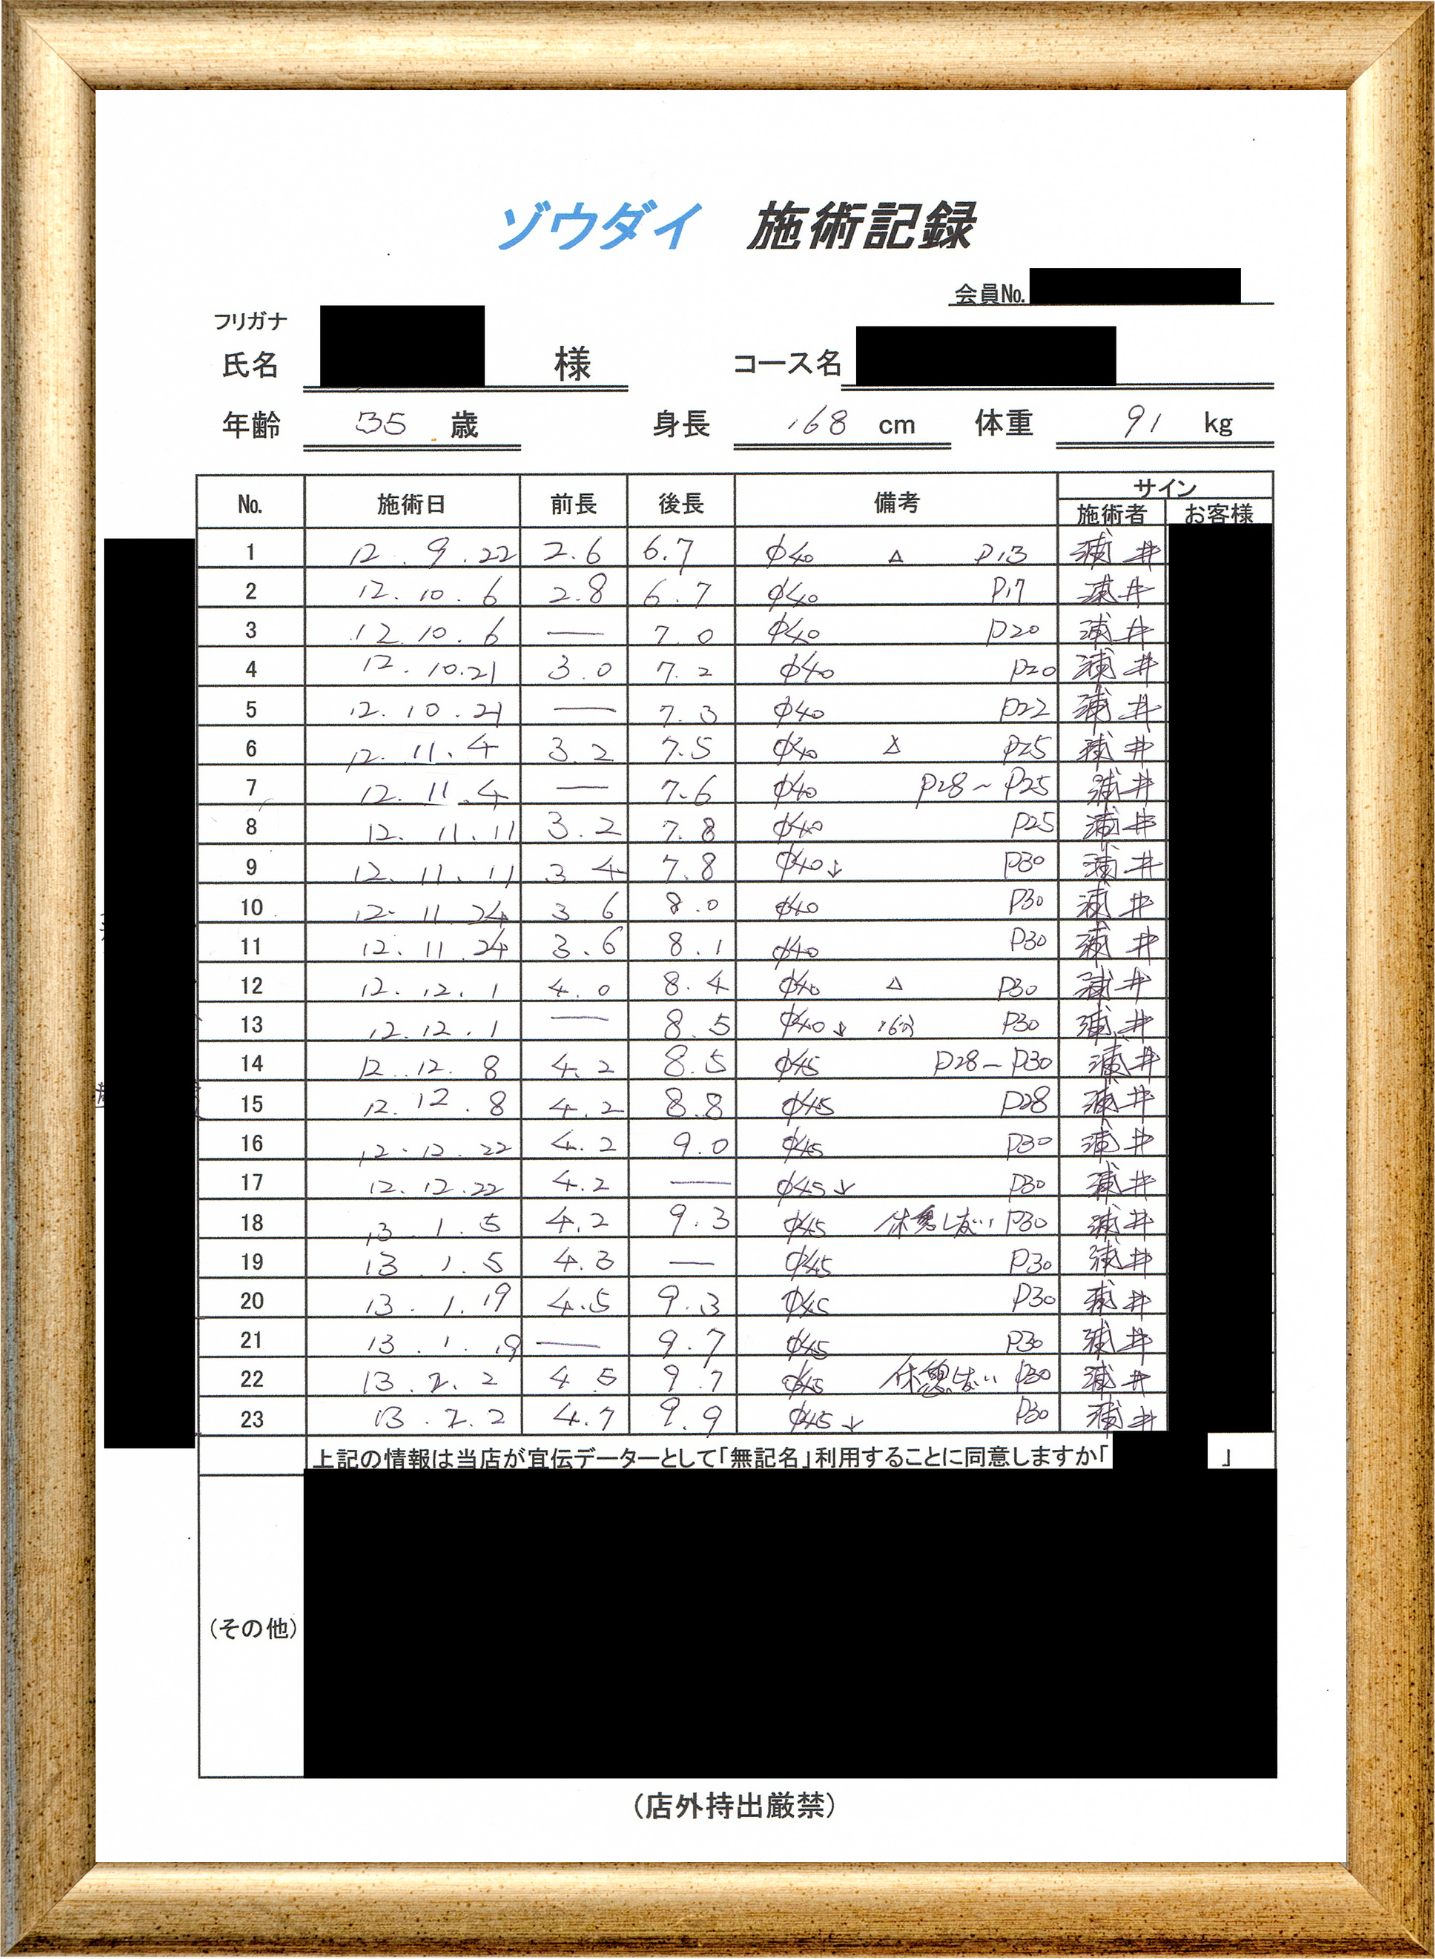 ゾウダイ 施術記録
会員No.
フリガナ
氏名 様 コース名
年齢 35 歳 身長 168 cm 体重 91 kg
No. 施術日 前長 後長 備考 サイン
施術者 お客様
1 12.9.22 2.6 6.7 φ40 △ P13 浦井
2 12.10.6 2.8 6.7 φ40 P17 浦井
3 12.10.6 — 7.0 φ40 P20 浦井
4 12.10.21 3.0 7.2 φ40 P20 浦井
5 12.10.21 — 7.3 φ40 P22 浦井
6 12.11.4 3.2 7.5 φ40 △ P25 浦井
7 12.11.4 — 7.6 φ40 P28~P25 浦井
8 12.11.11 3.2 7.8 φ40 P25 浦井
9 12.11.11 3.4 7.8 φ40↓ P30 浦井
10 12.11.24 3.6 8.0 φ40 P30 浦井
11 12.11.24 3.6 8.1 φ40 P30 浦井
12 12.12.1 4.0 8.4 φ40 △ P30 浦井
13 12.12.1 — 8.5 φ40↓ 16分 P30 浦井
14 12.12.8 4.2 8.5 φ45 P28~P30 浦井
15 12.12.8 4.2 8.8 φ45 P28 浦井
16 12.12.22 4.2 9.0 φ45 P30 浦井
17 12.12.22 4.2 — φ45↓ P30 浦井
18 13.1.5 4.2 9.3 φ45 休憩しない P30 浦井
19 13.1.5 4.3 — φ45 P30 浦井
20 13.1.19 4.5 9.3 φ45 P30 浦井
21 13.1.19 — 9.7 φ45 P30 浦井
22 13.2.2 4.5 9.7 φ45 休憩しない P30 浦井
23 13.2.2 4.7 9.9 φ45↓ P30 浦井
上記の情報は当店が宣伝データーとして「無記名」利用することに同意しますか「 」
(その他)
(店外持出厳禁)